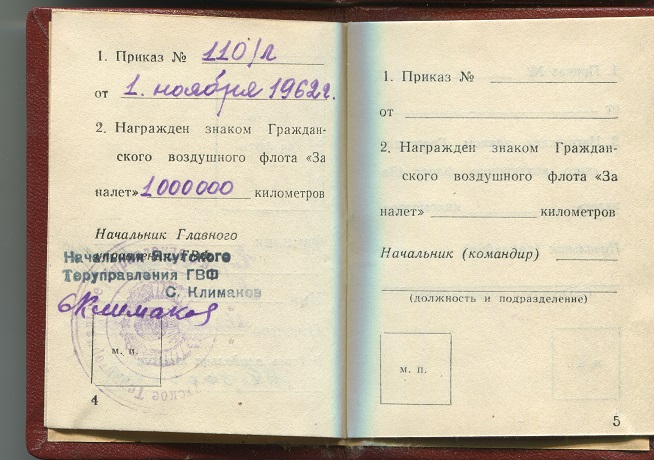 1. Приказ № 110/л
от 1. ноября 1962г.
2. Награжден знаком Граждан-
ского воздушного флота «За
налет» 1000000 километров
Начальник Главного
управления ГВФ
Начальник Якутского
Теруправления ГВФ
С. Климаков
Климаков
м. п.
4
1. Приказ №
от
2. Награжден знаком Граждан-
ского воздушного флота «За
налет» километров
Начальник (командир)
(должность и подразделение)
м. п.
5